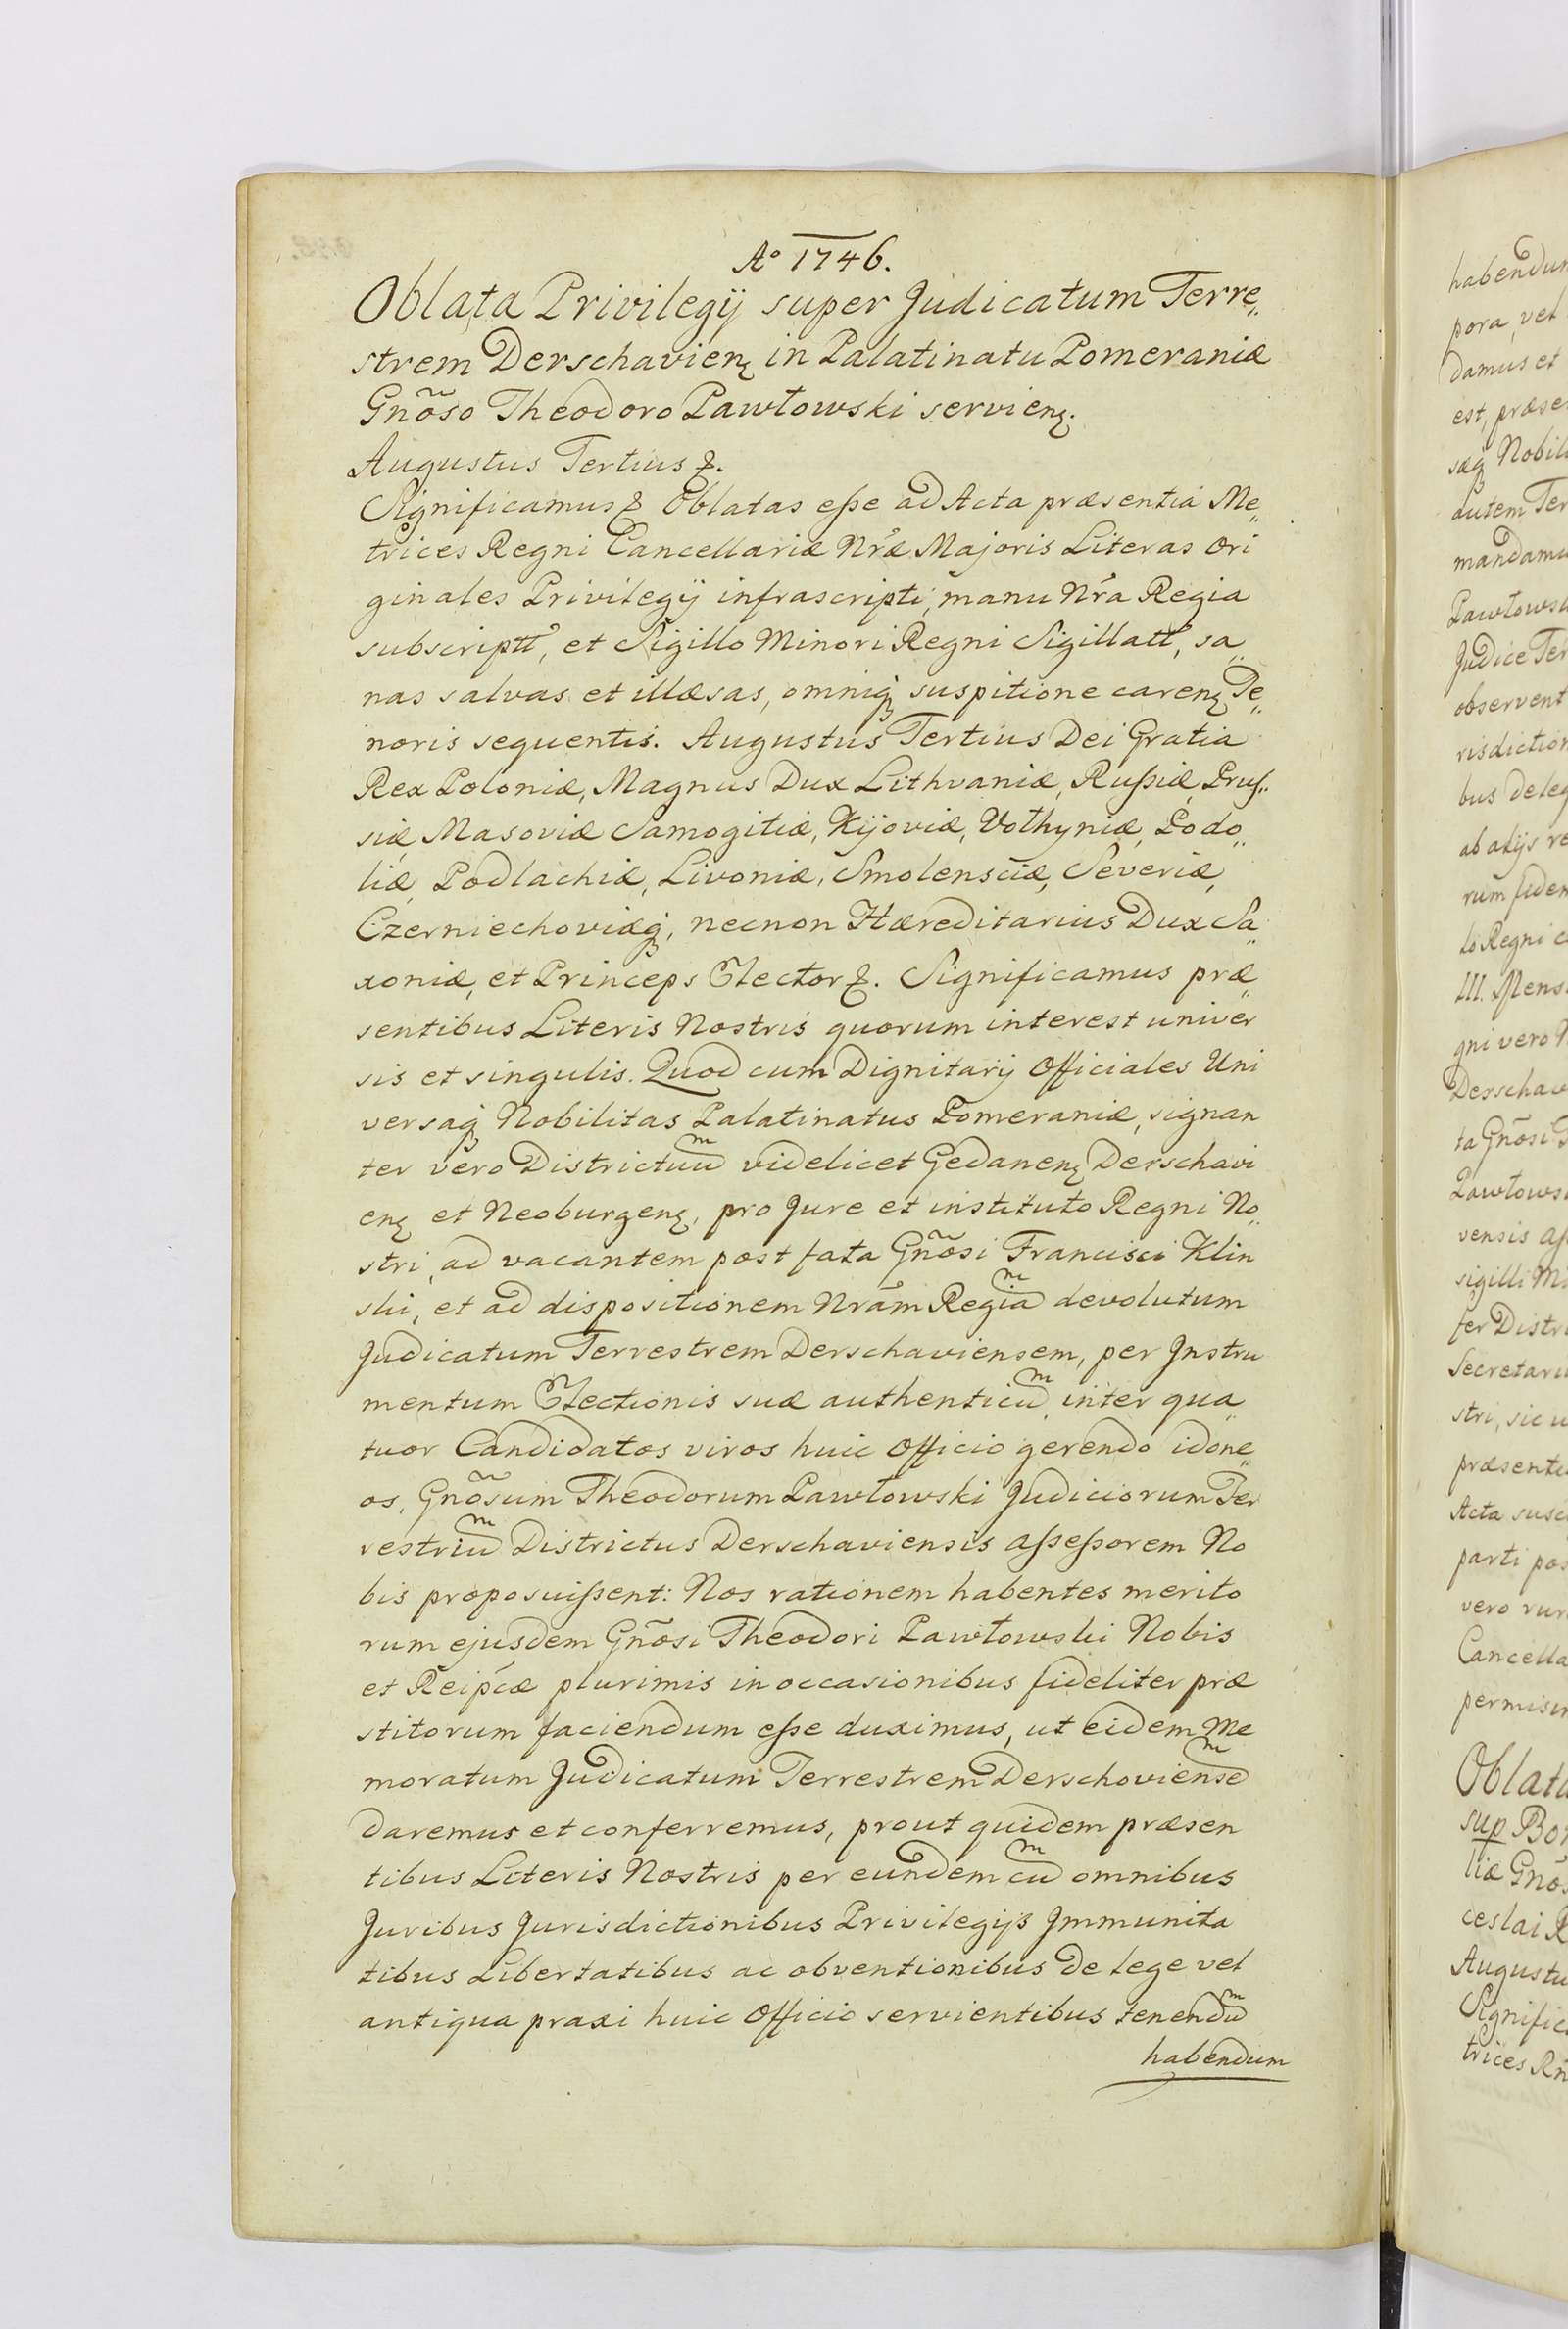 Aº 1746.
Oblata Privilegÿ super Judicatum Terre„
strem Derschavienȝ in Palatinatu Pomeraniæ
Gnõso Theodoro Pawłowski servienȝ.
Augustus Tertius &.
Significamus & Oblatas eße ad Acta præsentia Me„
trices Regni Cancellariæ Nræ Majoris Literas Ori
ginales Privilegÿ infrascripti, manu Nra Regia
subscriptt, et Sigillo Minori Regni Sigillatt, sa„
nas salvas et illæsas, omniq; suspitione carenȝ Te„
noris sequentis. Augustus Tertius Dei Gratia
Rex Poloniæ, Magnus Dux Lithvaniæ, Rußiæ, Pruß„
siæ, Masoviæ Samogitiæ, Kijoviæ, Volhyniæ, Podo„
liæ, Podlachiæ, Livoniæ, Smolensciæ, Severiæ,
Czerniechoviæq;, necnon Hæreditarius Dux Sa„
xoniæ, et Princeps Elector &. Significamus præ„
sentibus Literis Nostris quorum interest univer
sis et singulis. Quod cum Dignitarÿ Officiales Uni
versaq; Nobilitas Palatinatus Pomeraniæ, signan
ter vero Districtuũ videlicet Gedanenȝ Derschavi
enȝ et Neoburgenȝ, pro Jure et instituto Regni No„
stri, ad vacantem post fata Gnõsi Francisci Klin
ski, et ad dispositionem Nrãm Regiam devolutum
Judicatum Terrestrem Derschaviensem, per Instru
mentum Electionis suæ authenticum inter qua„
tuor Candidatos viros huic Officio gerendo idone„
os, Gnõsum Theodorum Pawłowski Judiciorum Ter
restrium Districtus Derschaviensis aßeßorem No
bis proposuißent: Nos rationem habentes merito
rum ejusdem Gnõsi Theodori Pawłowski Nobis
et Reipcæ plurimis in occasionibus fideliter præ
stitorum faciendum eße duximus, ut eidem Me
moratum Judicatum Terrestrem Derschoviensem
daremus et conferremus, prout quidem præsen
tibus Literis Nostris per eundem cum omnibus
Juribus Jurisdictionibus Privilegijs Immunita
tibus Libertatibus ac obventionibus de lege vel
antiqua praxi huic Officio servientibus tenendum
habendum